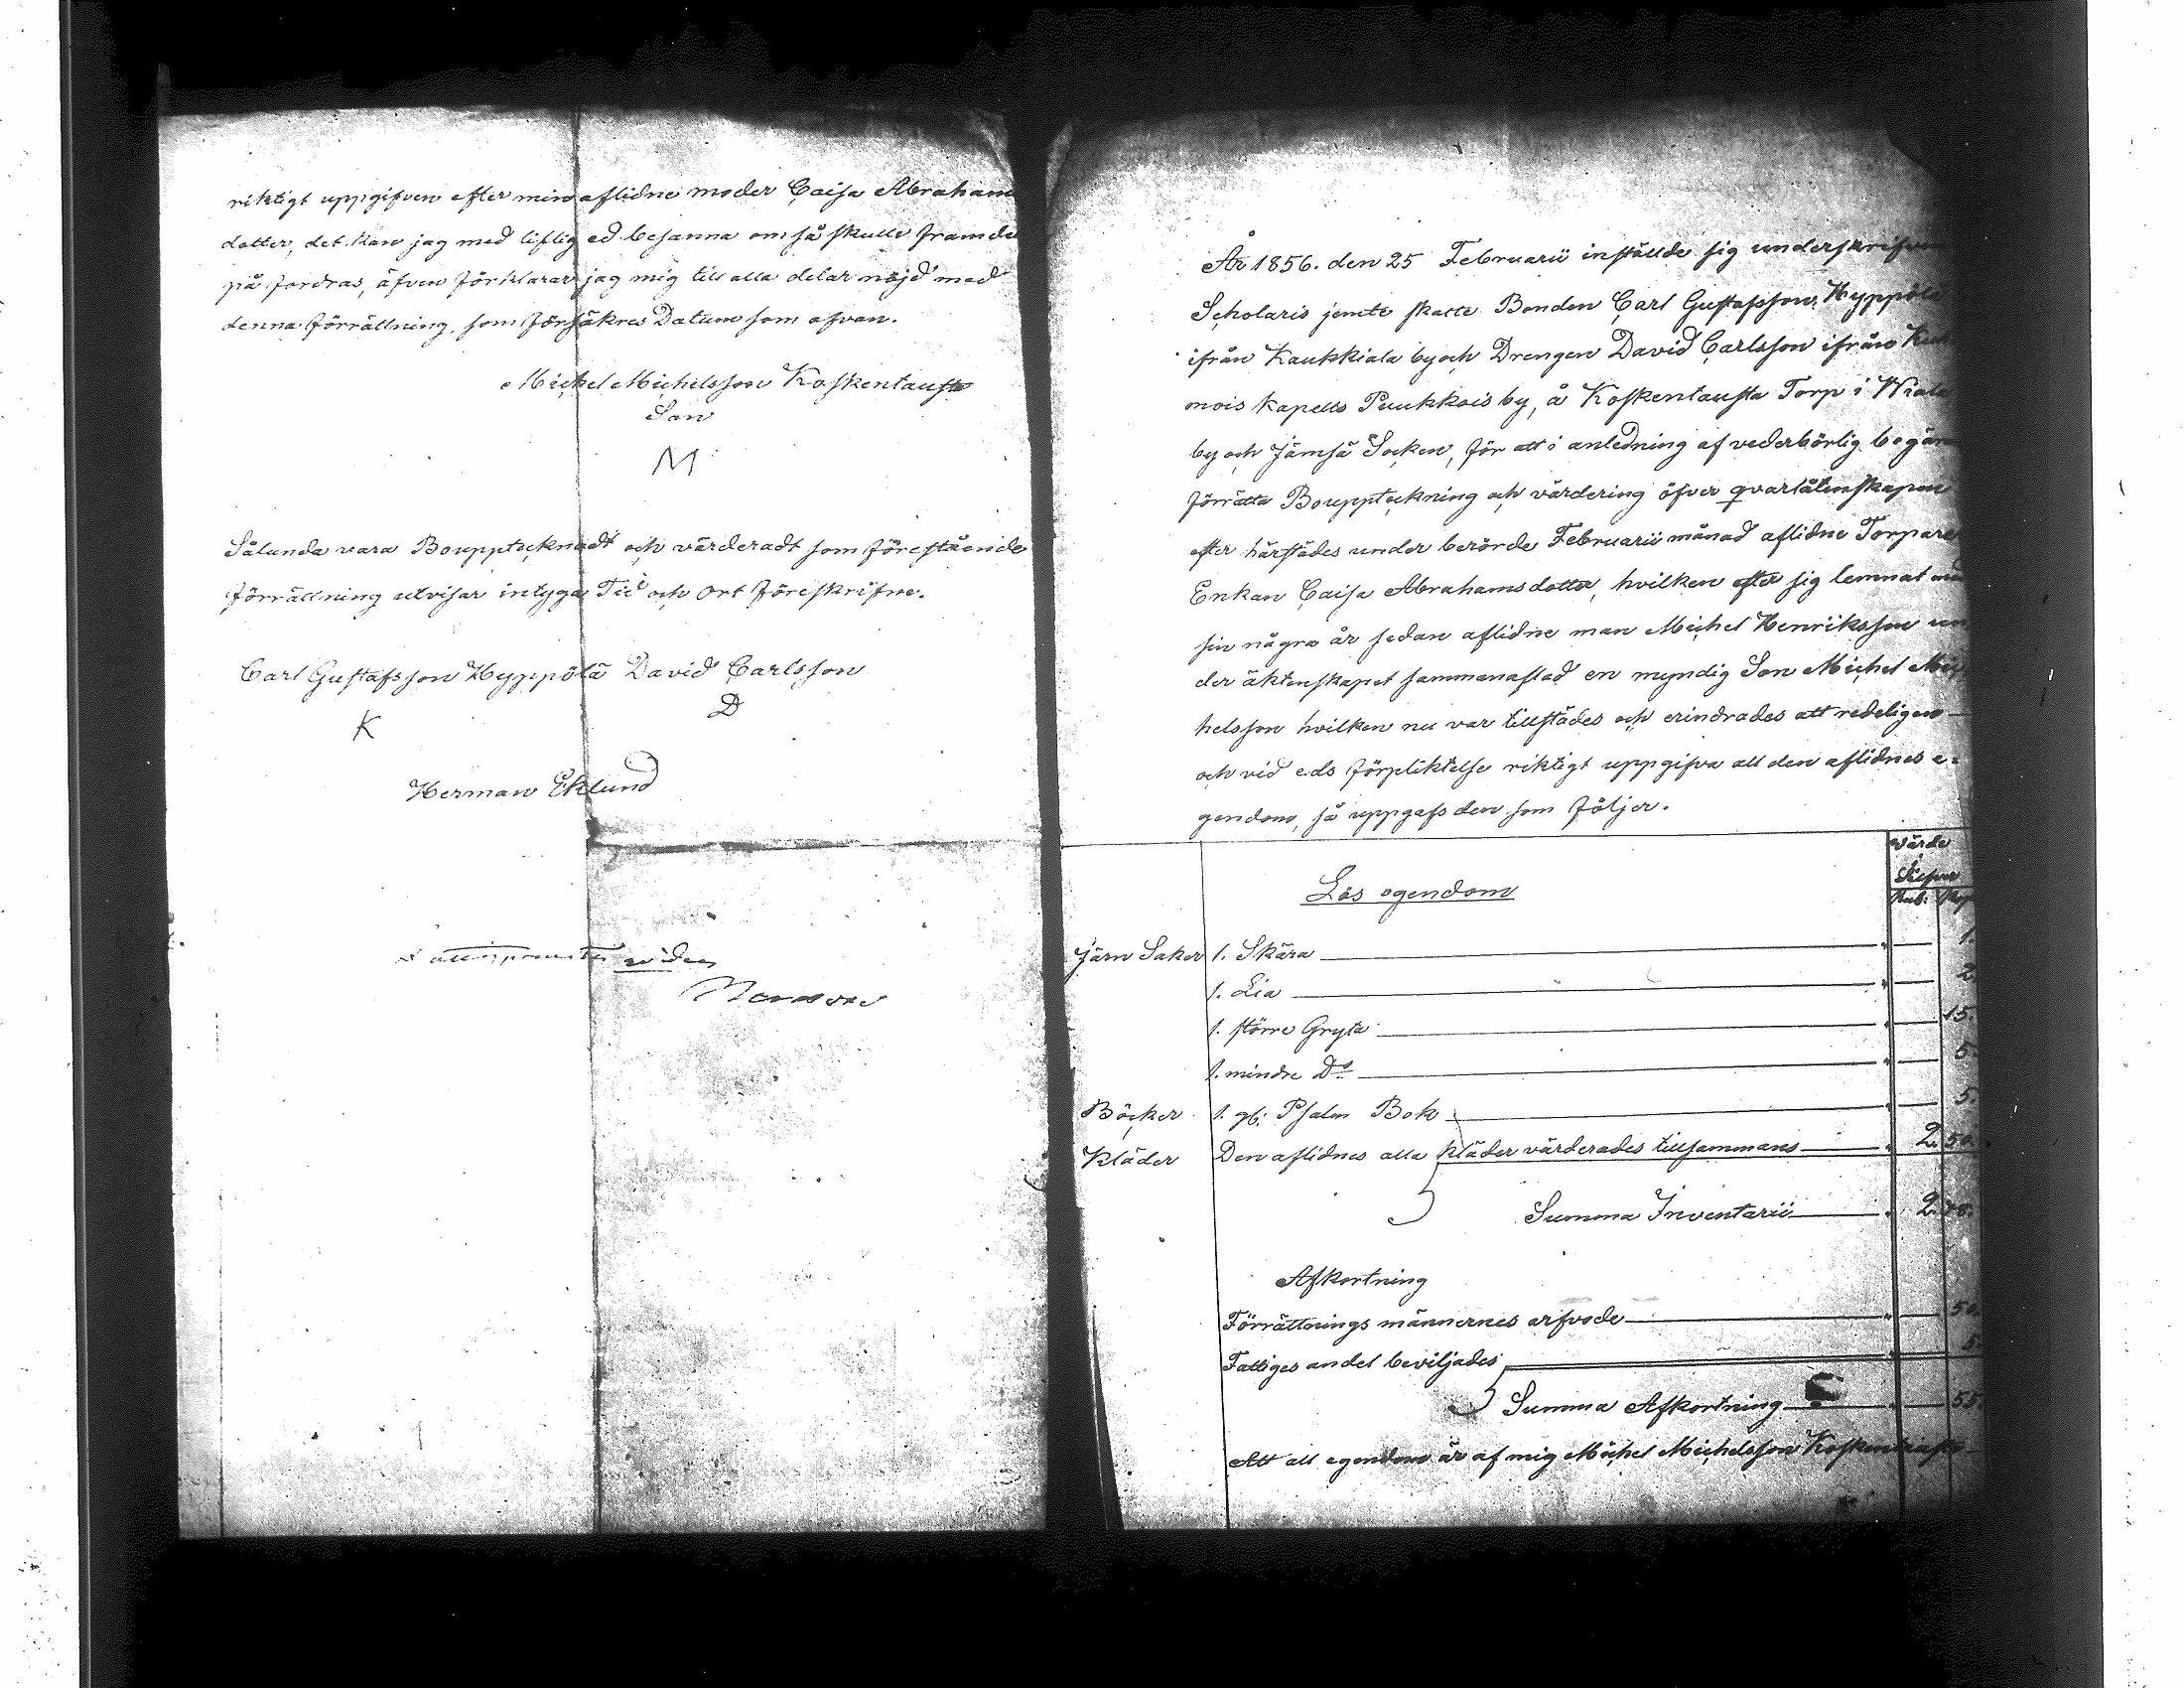 riktigt uppgifven efter min aflidne moder Caisa Abrahams
dotter, det kan jag med liflig ed besanna om så skulle framde
på fordras, äfven förklarar jag mig till alla delar nöjd med
denna förrättning, som försäkres Datum som ofvan.
Michel Michelsson Koskentausta
Son
M
Sålunda vara Boupptecknadt och värderadt som förestående
förrättning utvisar intyga Tid och Ort föreskrifne.
Carl Gustafsson Hyppölä David Carlsson
K D
Herman Eklund
År 1856. den 25 Februarii inställde sig underskrifven
Scholaris jemte skatte Bonden Carl Gustafsson Hyppölä
ifrån Kaukkiala by och Drengen David Carlsson ifrån Kuh
mois kapells Puukkois by, å Koskentausta Torp i Wiala
by och Jämsä Socken, för att i anledning af vederbörlig begäran
förrätta Bouppteckning och värdering öfver qvarlåtenskapen
efter härstädes under berörde Februarii månad aflidne Torpare
Enkan Caisa Abrahamsdotter, hvilken efter sig lemnat med
sin några år sedan aflidne man Michel Henriksson un
der äktenskapet sammanaflad en myndig Son Michel Mic
helsson hvilken nu var tillstädes och erindrades att redeligen
och vid eds förpliktelse riktigt uppgifva all den aflidnes e=
gendom, så uppgafs den som följer.
värde
i
Silfver
Rub: Kop
Lös egendom
Järn Saker 1. Skära 1.
1. Lia 2.
1. större Gryta 15.
1. mindre Do 5.
Böcker 1. gl: Psalm Bok 5.
Kläder Den aflidnes alla kläder värderades tillsammans 2. 50.
Summa Inventarii 2. 78.
Afkortning
Förrättnings männernes arfvode 50.
Fattiges andel beviljades 5.
Summa Afkortning 55.
Att all egendom är af mig Michel Michelsson Koskentausta